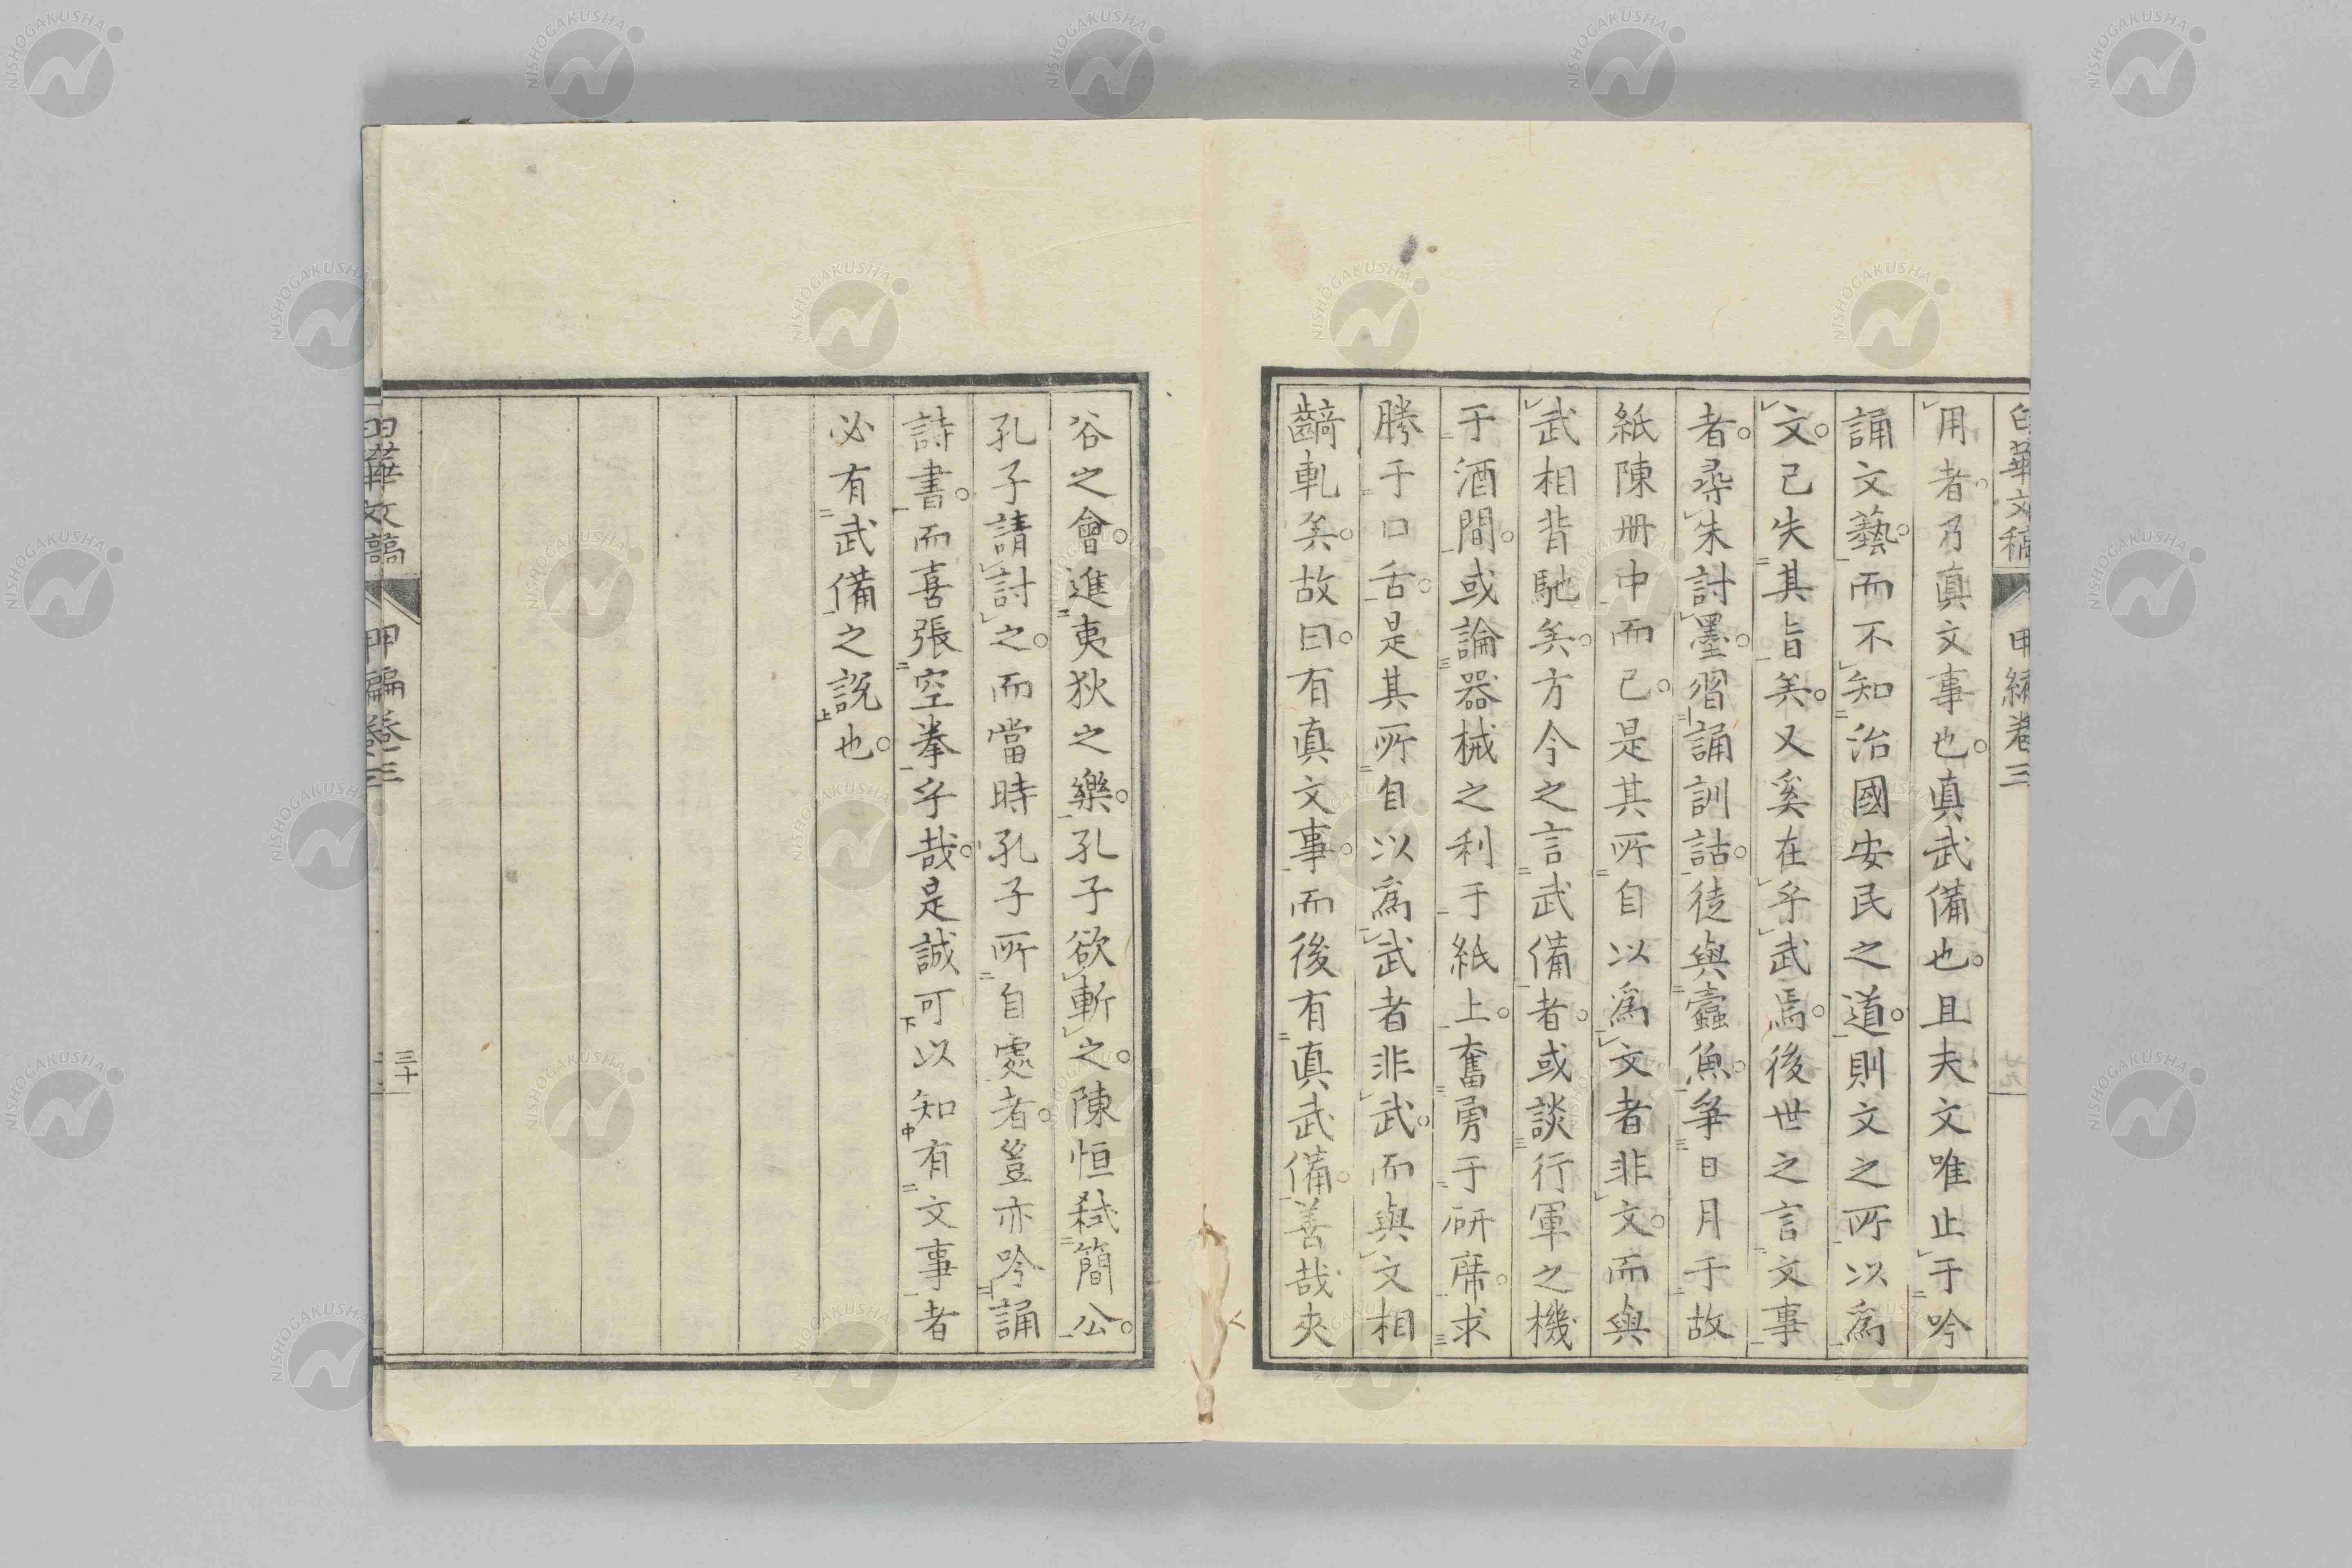 白華文稿 甲編卷三
用者。乃真文事也。真武備也。且夫文唯止于吟
誦文藝。而不知治國安民之道。則文之所以為
文。已失其旨矣。又奚在乎武焉。後世之言文事
者。尋朱討墨。習誦訓詁。徒與蠹魚。爭日月于故
紙陳册中而已。是其所自以為文者非文。而與
武相背馳矣。方今之言武備者。或談行軍之機
于酒間。或論器械之利于紙上。奮勇于研席。求
勝于口舌。是其所自以為武者非武。而與文相
齮軋矣。故曰。有真文事。而後有真武備。善哉夾
谷之會。進夷狄之樂。孔子欲斬之。陳恒弒簡公。
孔子請討之。而當時孔子所自處者。豈亦吟誦
詩書。而喜張空拳乎哉。是誠可以知有文事者
必有武備之說也。
白華文稿 甲編卷三 三十
NISHOGAKUSHA